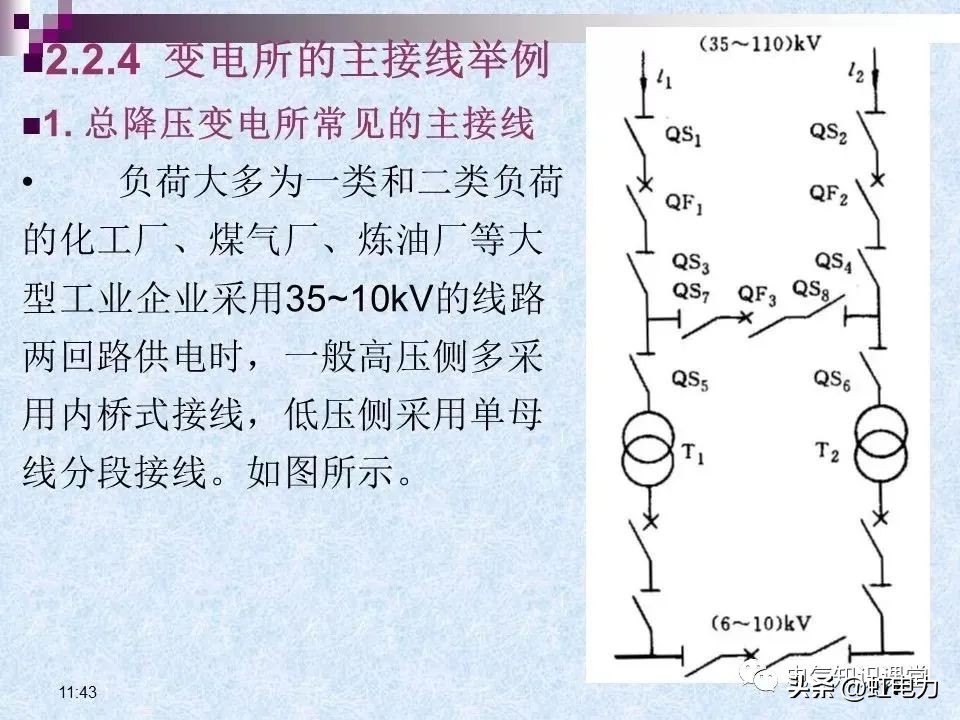 2.2.4 变电所的主接线举例
1. 总降压变电所常见的主接线
负荷大多为一类和二类负荷
的化工厂、煤气厂、炼油厂等大
型工业企业采用35~10kV的线路
两回路供电时，一般高压侧多采
用内桥式接线，低压侧采用单母
线分段接线。如图所示。
(35～110)kV
l1 l2
QS1 QS2
QF1 QF2
QS3 QS4
QS7 QF3 QS8
QS5 QS6
T1 T2
(6～10)kV
电气知识课堂
头条 @虹电力
11:43